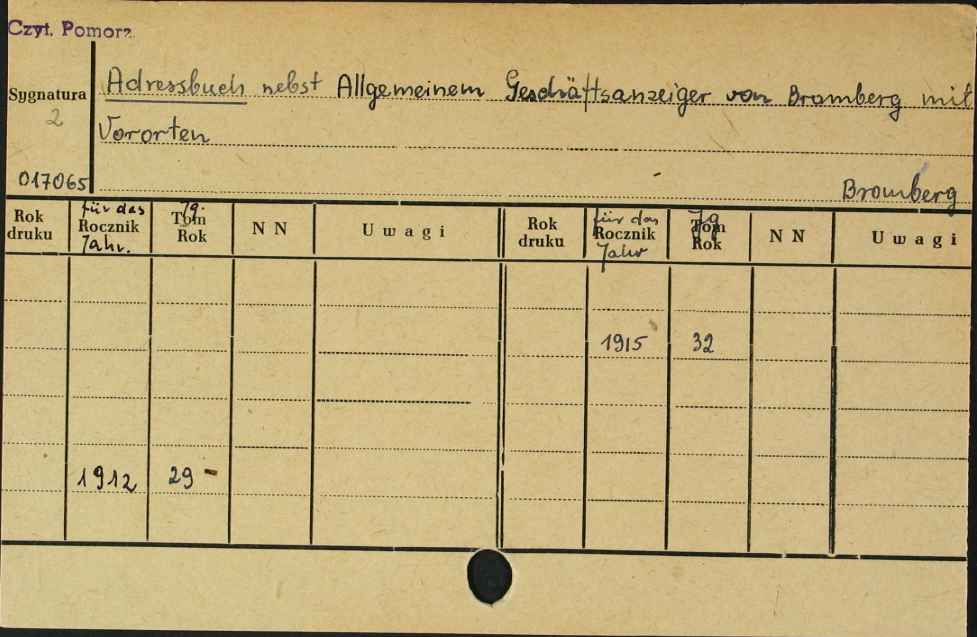 Czyt. Pomorz.
Sygnatura
2
017065
Adressbuch nebst Allgemeinem Geschäftsanzeiger von Bromberg mit
Vororten
Bromberg
Rok druku für das Rocznik Jahr. Jg. Tom Rok NN Uwagi Rok druku für das Rocznik Jahr Jg Tom Rok NN Uwagi
1915 32
1912 29 -